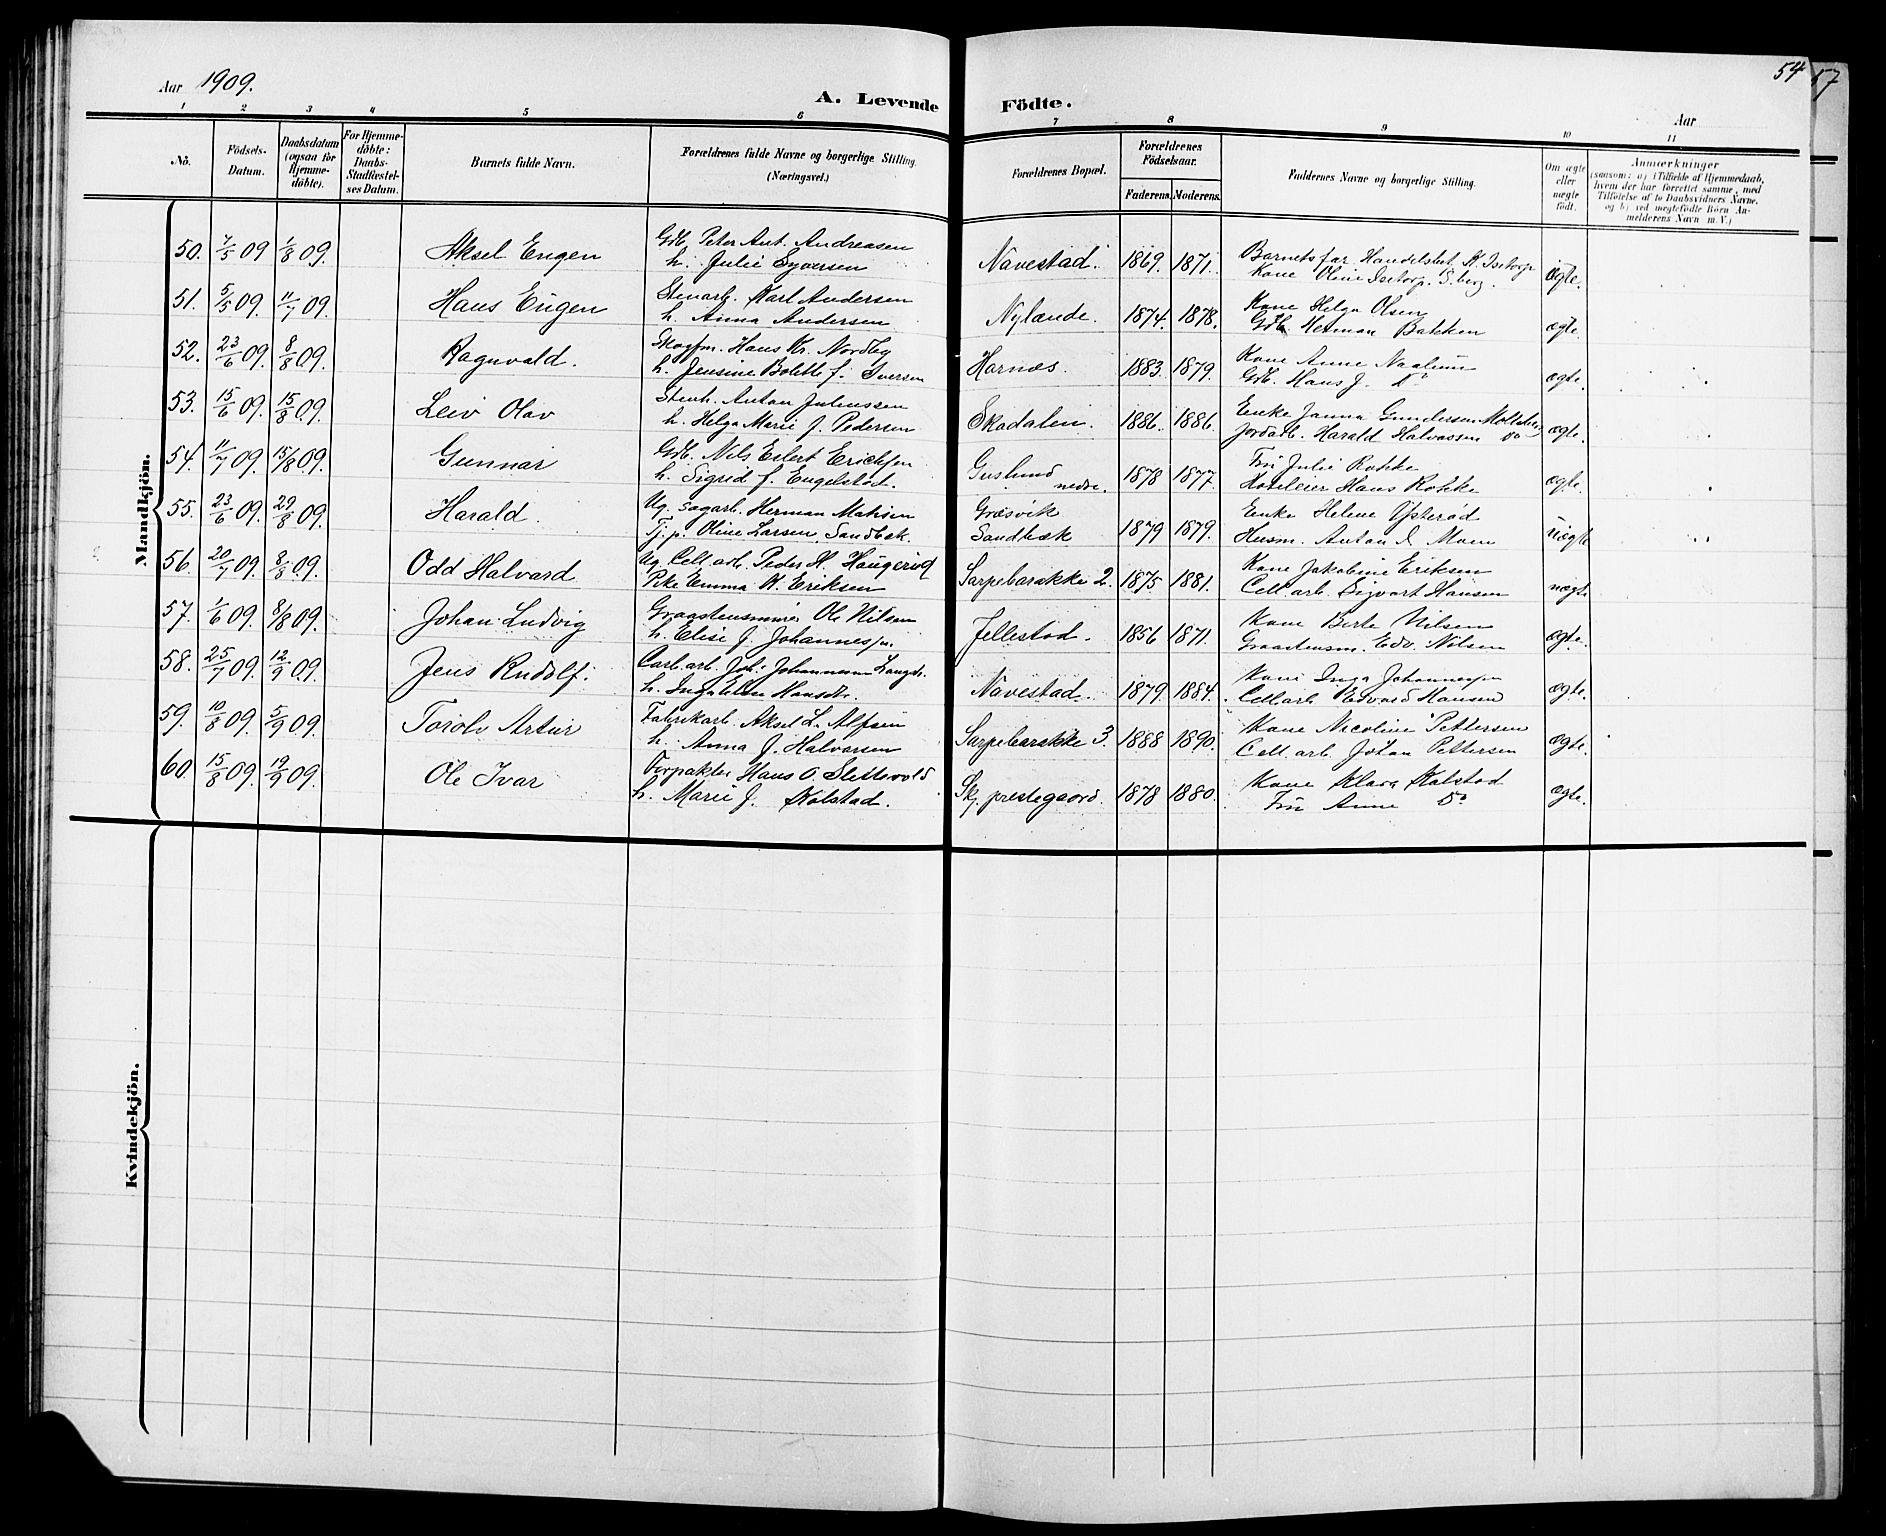 54
57
Aar 1909.
A. Levende Födte.
Aar
1 2 3 4 5 6 7 8 9 10 11
No.
Födsels-Datum.
Daabsdatum (ogsaa för Hjemmedöbte).
For Hjemmedöbte: Daabs-Stadfæstelses Datum.
Barnets fulde Navn.
Forældrenes fulde Navne og borgerlige Stilling. (Næringsvei.)
Forældrenes Bopæl.
Forældrenes Födselsaar.
Faderens. Moderens.
Faddernes Navne og borgerlige Stilling.
Om ægte eller uægte födt.
Anmærkninger
(saasom: a) i Tilfælde af Hjemmedaab, hvem der har forrettet samme, med Tilföielse af to Daabsvidners Navne, og b) ved uægtefödte Börn Anmelderens Navn m. V.)
Mandkjön.
50. 7/5 09 1/8 09. Aksel Eugen Gdb. Peter Ant. Andreasen Navestad. 1869. 1871. Barnets far Handelsbet. Isetorp ægte.
h. Julie Syversen Kone Oline Isetorp. S.berg.
51. 5/5 09. 11/7 09. Hans Eugen Stenarb. Karl Andersen Nylænde. 1874. 1878. Kone Helga Olsen ægte.
h. Anna Andersen Gdb. Herman Bakken
52. 23/6 09. 8/8 09. Ragnvald. Skogfm. Hans Kr. Nordby Hornæs. 1883. 1879. Kone Anne Naalum ægte.
h. Jensine Bolette f. Iversen Gdb. Hans J. Do
53. 15/6 09. 15/8 09. Leiv Olav Stenh. Anton Juliussen Skadalen. 1886. 1886. Enke Janna Gundersen ægte.
h. Helga Marie f. Pedersen Jordarb. Harald Halvorsen do
54. 11/7 09. 15/8 09. Gunnar Gdb. Nils Eilert Erichsen Guslund nedre. 1878 1877. Fru Julie Rokke ægte.
h. Sigrid f. Engelstad. Hoteleier Hans Rokke
55. 23/6 09. 29/8 09. Harald. Ug. sagarb. Herman Græsvik 1879 1879. Enke Helene Ysterød uægte
Tj.p. Oline Larsen, Sandbæk. Sandbæk Husm. Anton Moen
56. 20/7 09. 8/8 09. Odd Halvard Ug. Cell. arb. Peder H. Haugerød Sarpebarakke 2. 1875 1881. Kone Jakobine Eriksen uægte
Pike Emma Eriksen Cell. arb. Sigvart Hansen
57. 1/6 09. 8/8 09. Johan Ludvig Graastensminer Ole Nilsen Jellestad. 1856 1871. Kone Berte Nilsen ægte.
h. Elise f. Johannesen. Graastensm. Edv. Nilsen
58. 25/7 09. 12/9 09. Jens Rudolf. Carb. arb. Joh. Johannesen Navestad. 1879 1884. Kone Inga Johannesen ægte.
h. Inga Hansdr. Cell. arb Edvard Hansen
59. 10/8 09. 5/9 09. Torolv Artur Fabrikarb. Aksel L. Alfsen Sarpebarakke 3. 1888 1890. Kone Nicoline Pettersen ægte.
h. Anna f. Halvorsen Cell. arb. Johan Pettersen
60. 15/8 09. 19/9 09. Ole Ivar Forpakter Hans O. Slettevold Skj. prestegaard. 1878 1880. Kone Klara Kolstad ægte.
h. Marie f. Kolstad. Fru Anne Do
Kvindekjön.